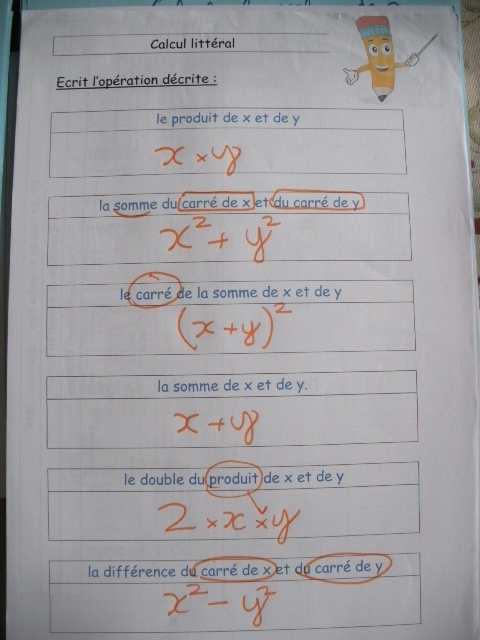 Calcul littéral
Ecrit l'opération décrite :
le produit de x et de y
x × y
la somme du carré de x et du carré de y
x² + y²
le carré de la somme de x et de y
(x + y)²
la somme de x et de y.
x + y
le double du produit de x et de y
2 × x × y
la différence du carré de x et du carré de y
x² - y²